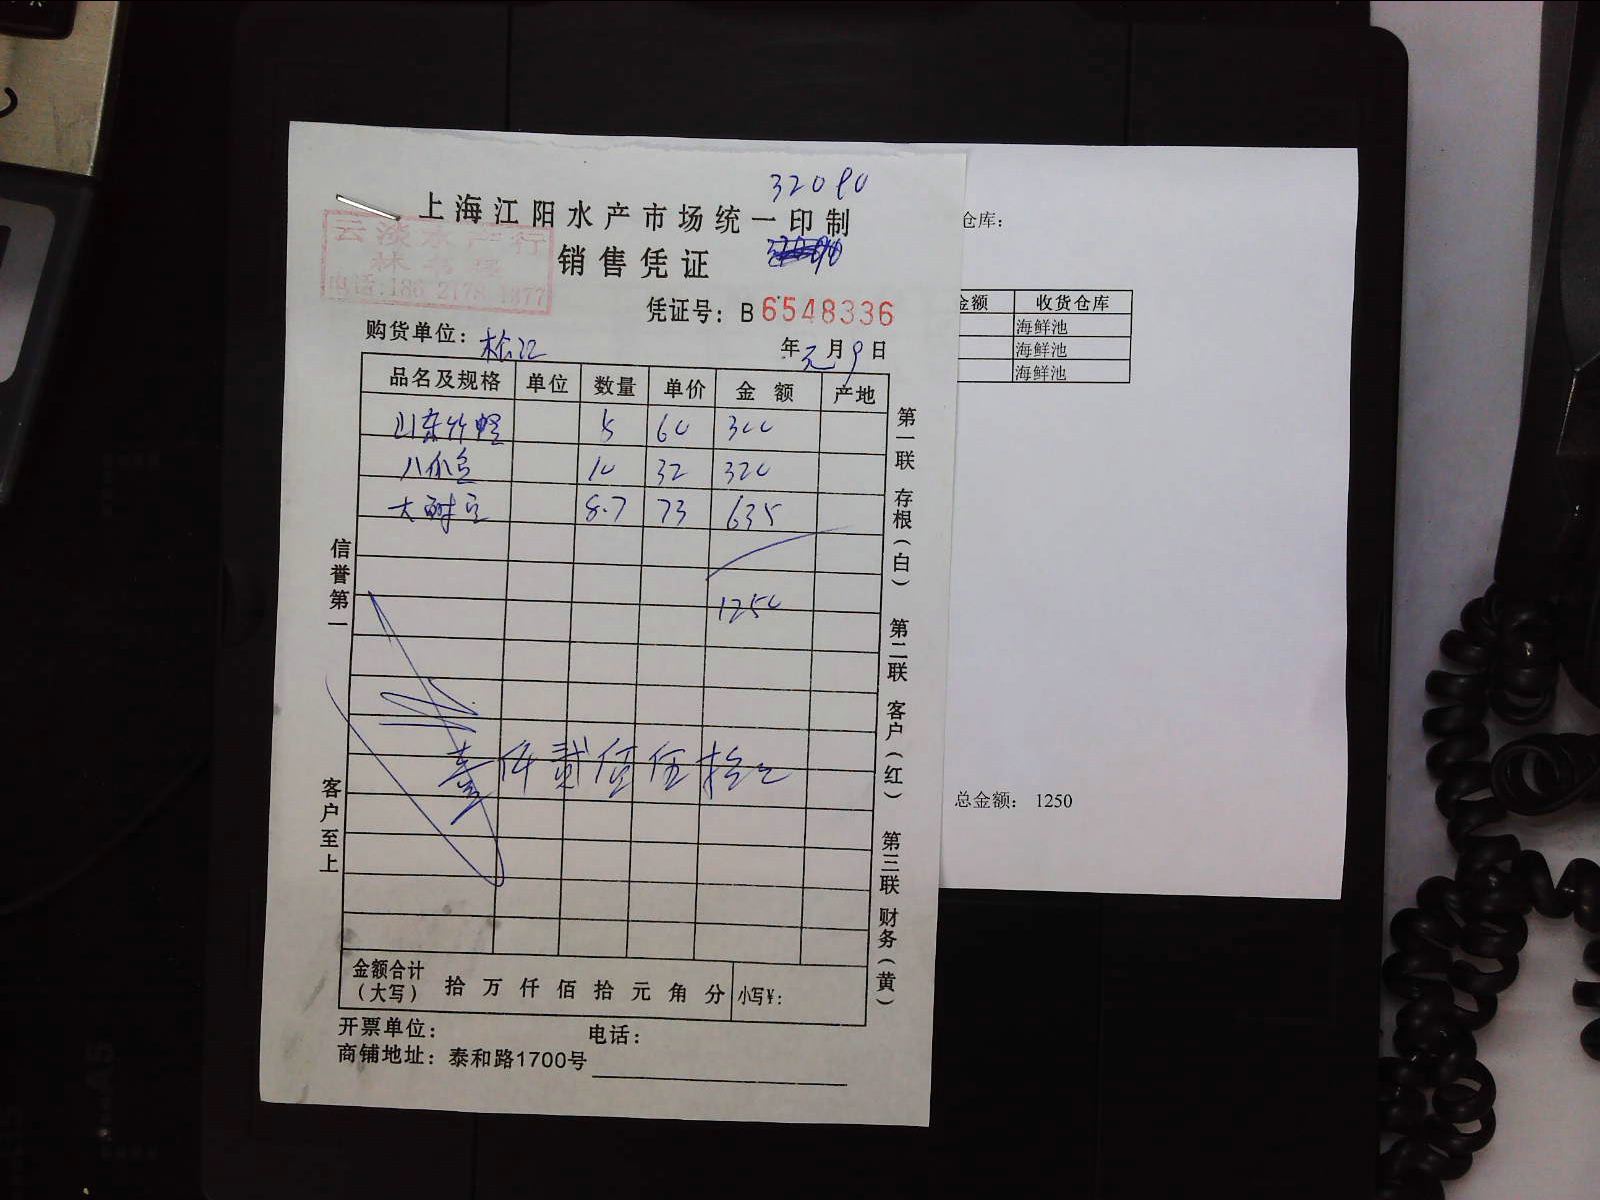 32090
上海江阳水产市场统一印制
销售凭证
云淡水产行
凭证号: B 6548336
购货单位: 松江
年元月9日
品名及规格 单位 数量 单价 金额 产地
山东竹蛏 5 60 300
八爪 10 32 320
大 8.7 73 635
1250
壹仟贰佰伍拾元
金额合计
(大写) 拾 万 仟 佰 拾 元 角 分 小写¥:
开票单位: 电话:
商铺地址: 泰和路1700号
信誉第一
客户至上
第一联 存根(白)
第二联 客户(红)
第三联 财务(黄)
仓库:
金额 收货仓库
海鲜池
海鲜池
海鲜池
总金额: 1250